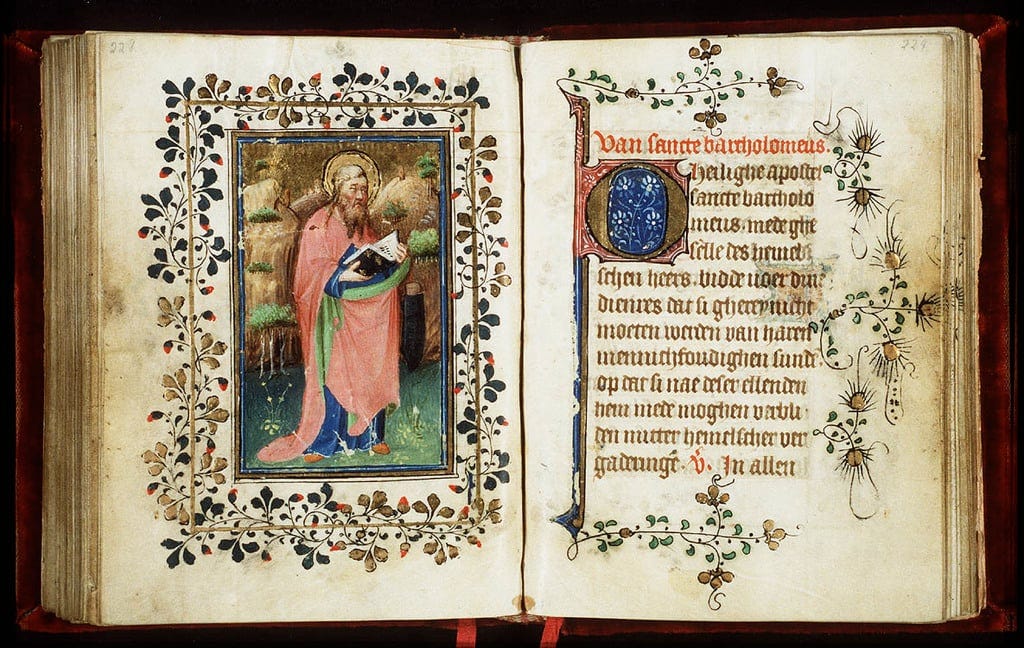 228
229
Van sancte bartholomeus.
O Heilighe apostel
sancte bartholo
meus. mede ghe
selle des hemel
schen heers. bidde voer
dienres dat si ghereynicht
moeten werden van haren
mennichfoudighen sund
op dat si nae deser ellenden
hem mede moghen verbli
den mitter hemelscher ver
gaderingē. V̄. In allen